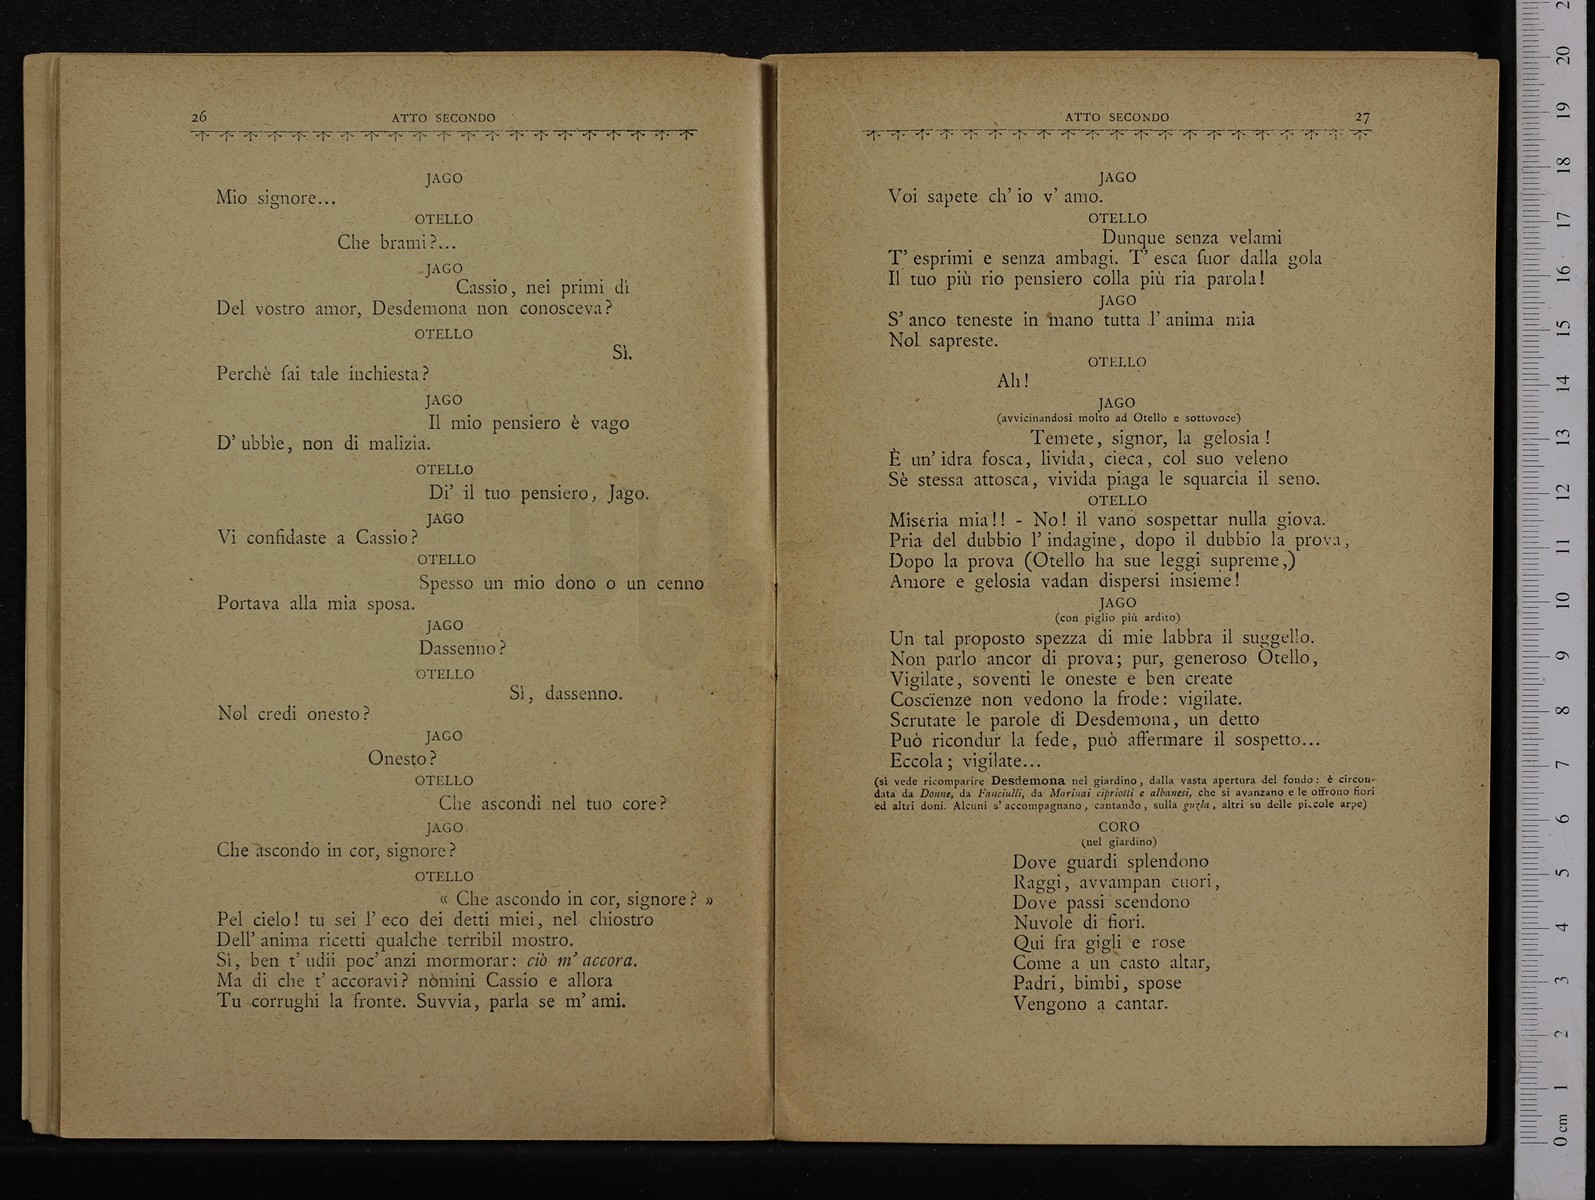 26
ATTO SECONDO
JAGO
Mio signore...
OTELLO
Che brami?...
JAGO
Cassio, nei primi dì
Del vostro amor, Desdemona non conosceva?
OTELLO
Sì.
Perchè fai tale inchiesta?
JAGO
Il mio pensiero è vago
D' ubbìe, non di malizia.
OTELLO
Di' il tuo pensiero, Jago.
JAGO
Vi confidaste a Cassio?
OTELLO
Spesso un mio dono o un cenno
Portava alla mia sposa.
JAGO
Dassenno?
OTELLO
Sì, dassenno.
Nol credi onesto?
JAGO
Onesto?
OTELLO
Che ascondi nel tuo core?
JAGO
Che ascondo in cor, signore?
OTELLO
« Che ascondo in cor, signore? »
Pel cielo! tu sei l' eco dei detti miei, nel chiostro
Dell' anima ricetti qualche terribil mostro.
Sì, ben t' udii poc' anzi mormorar: ciò m' accora.
Ma di che t' accoravi? nòmini Cassio e allora
Tu corrughi la fronte. Suvvia, parla se m' ami.
ATTO SECONDO
27
JAGO
Voi sapete ch' io v' amo.
OTELLO
Dunque senza velami
T' esprimi e senza ambagi. T' esca fuor dalla gola
Il tuo più rio pensiero colla più ria parola!
JAGO
S' anco teneste in mano tutta l' anima mia
Nol sapreste.
OTELLO
Ah!
JAGO
(avvicinandosi molto ad Otello e sottovoce)
Temete, signor, la gelosia!
È un' idra fosca, livida, cieca, col suo veleno
Sè stessa attosca, vivida piaga le squarcia il seno.
OTELLO
Miseria mia!! - No! il vano sospettar nulla giova.
Pria del dubbio l' indagine, dopo il dubbio la prova,
Dopo la prova (Otello ha sue leggi supreme,)
Amore e gelosia vadan dispersi insieme!
JAGO
(con piglio più ardito)
Un tal proposto spezza di mie labbra il suggello.
Non parlo ancor di prova; pur, generoso Otello,
Vigilate, soventi le oneste e ben create
Coscïenze non vedono la frode: vigilate.
Scrutate le parole di Desdemona, un detto
Può ricondur la fede, può affermare il sospetto...
Eccola; vigilate...
(si vede ricomparire Desdemona nel giardino, dalla vasta apertura del fondo: è circon-
data da Donne, da Fanciulli, da Marinai cipriotti e albanesi, che si avanzano e le offrono fiori
ed altri doni. Alcuni s' accompagnano, cantando, sulla guzla, altri su delle piccole arpe)
CORO
(nel giardino)
Dove guardi splendono
Raggi, avvampan cuori,
Dove passi scendono
Nuvole di fiori.
Qui fra gigli e rose
Come a un casto altar,
Padri, bimbi, spose
Vengono a cantar.
0 cm 1 2 3 4 5 6 7 8 9 10 11 12 13 14 15 16 17 18 19 20